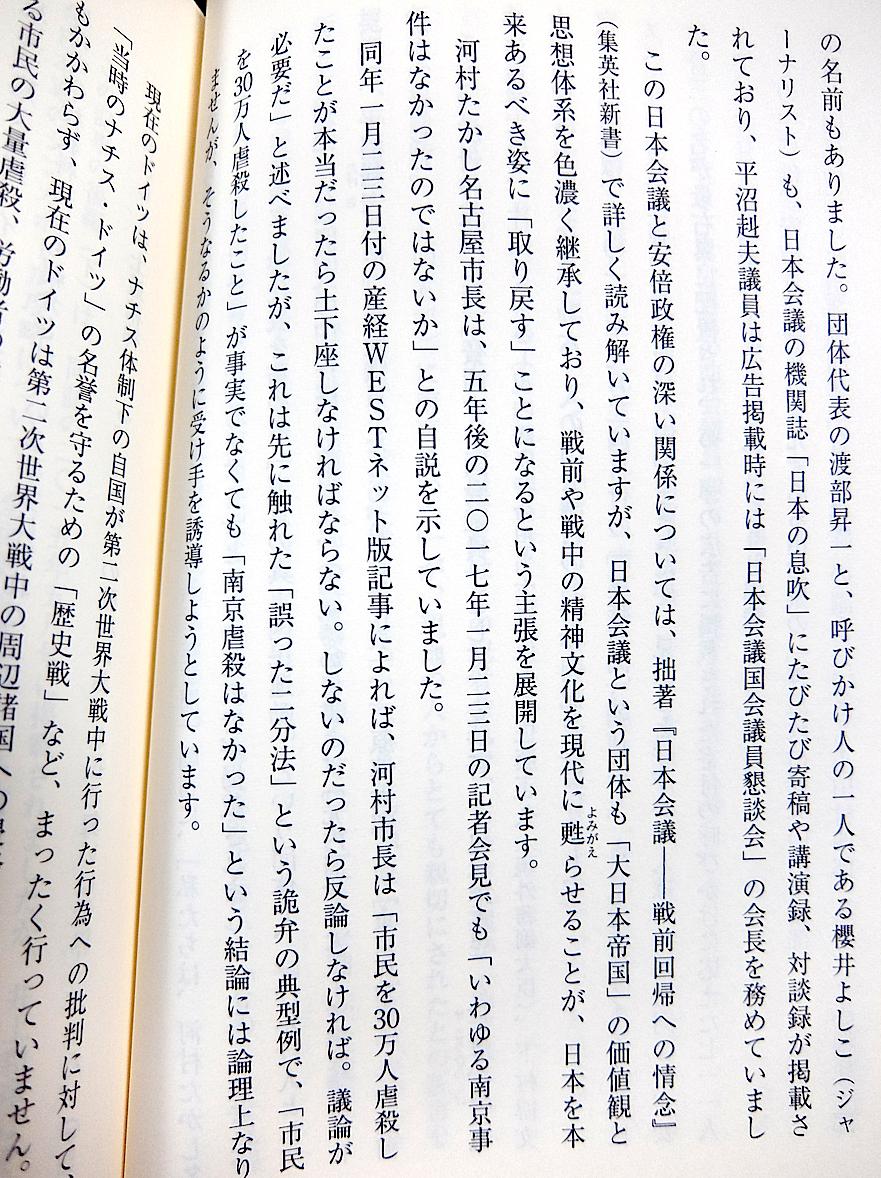 の名前もありました。団体代表の渡部昇一と、呼びかけ人の一人である櫻井よしこ（ジャ
ーナリスト）も、日本会議の機関誌「日本の息吹」にたびたび寄稿や講演録、対談録が掲載さ
れており、平沼赳夫議員は広告掲載時には「日本会議国会議員懇談会」の会長を務めていまし
た。
この日本会議と安倍政権の深い関係については、拙著『日本会議――戦前回帰への情念』
（集英社新書）で詳しく読み解いていますが、日本会議という団体も「大日本帝国」の価値観と
思想体系を色濃く継承しており、戦前や戦中の精神文化を現代に甦らせることが、日本を本
よみがえ
来あるべき姿に「取り戻す」ことになるという主張を展開しています。
河村たかし名古屋市長は、五年後の二〇一七年一月二三日の記者会見でも「いわゆる南京事
件はなかったのではないか」との自説を示していました。
同年一月二三日付の産経WESTネット版記事によれば、河村市長は「市民を30万人虐殺し
たことが本当だったら土下座しなければならない。しないのだったら反論しなければ。議論が
必要だ」と述べましたが、これは先に触れた「誤った二分法」という詭弁の典型例で、「市民
を30万人虐殺したこと」が事実でなくても「南京虐殺はなかった」という結論には論理上なり
ませんが、そうなるかのように受け手を誘導しようとしています。
現在のドイツは、ナチス体制下の自国が第二次世界大戦中に行った行為への批判に対して、
「当時のナチス・ドイツ」の名誉を守るための「歴史戦」など、まったく行っていません。
もかかわらず、現在のドイツは第二次世界大戦中の周辺諸国への
る市民の大量虐殺、労働者の